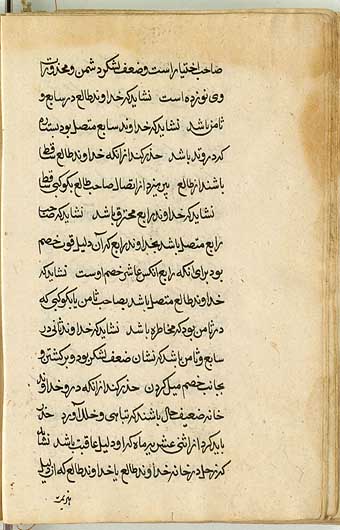 صاحب اختیار است وضعف لشکر دشمن و محذورات
وی نوزده است نشاید که خداوند طالع در سابع و
ثامن باشد نشاید که خداوند سابع متصل بود بستاره
که در وتد باشد حذر کند از آنکه خداوند طالع ساقط
باشد از طالع بپرهیزد از اتصال صاحب طالع بکوکبی ساقط
نشاید که خداوند رابع محترق باشد نشاید که صاحب
رابع متصل باشد بخداوند رابع که آن دلیل قوت خصم
بود برای آنکه رابع آنکس عاشر خصم اوست نشاید که
خداوند طالع متصل باشد بصاحب ثامن یا بکوکبی که
در ثامن بود که مخاطره باشد نشاید که خداوند ثانی در
سابع و ثامن باشد که نشان ضعف لشکر بود و برکشتن و
بجانب خصم میل کردن حذر کند از آنکه در و خداوند
خانه ضعیف حال باشند که تباهی و خلل آورد حذر
باید کرد از اثنی عشریه ماه که او دلیل عاقبت باشد نشاید
که زحل در خانه خداوند طالع یا خداوند طالع که از دلیل